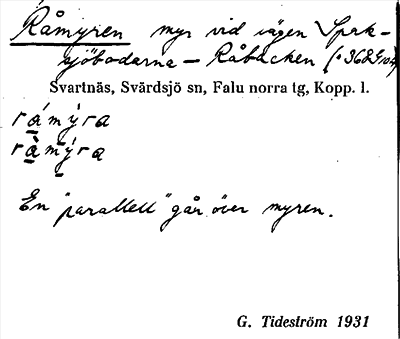 Råmyren myr vid vägen Spak-
sjöbodarna – Råbacken
Svartnäs, Svärdsjö sn, Falu norra tg, Kopp. l.
rámýra
rà̀mýra
En "parallell" går över myren.
G. Tideström 1931